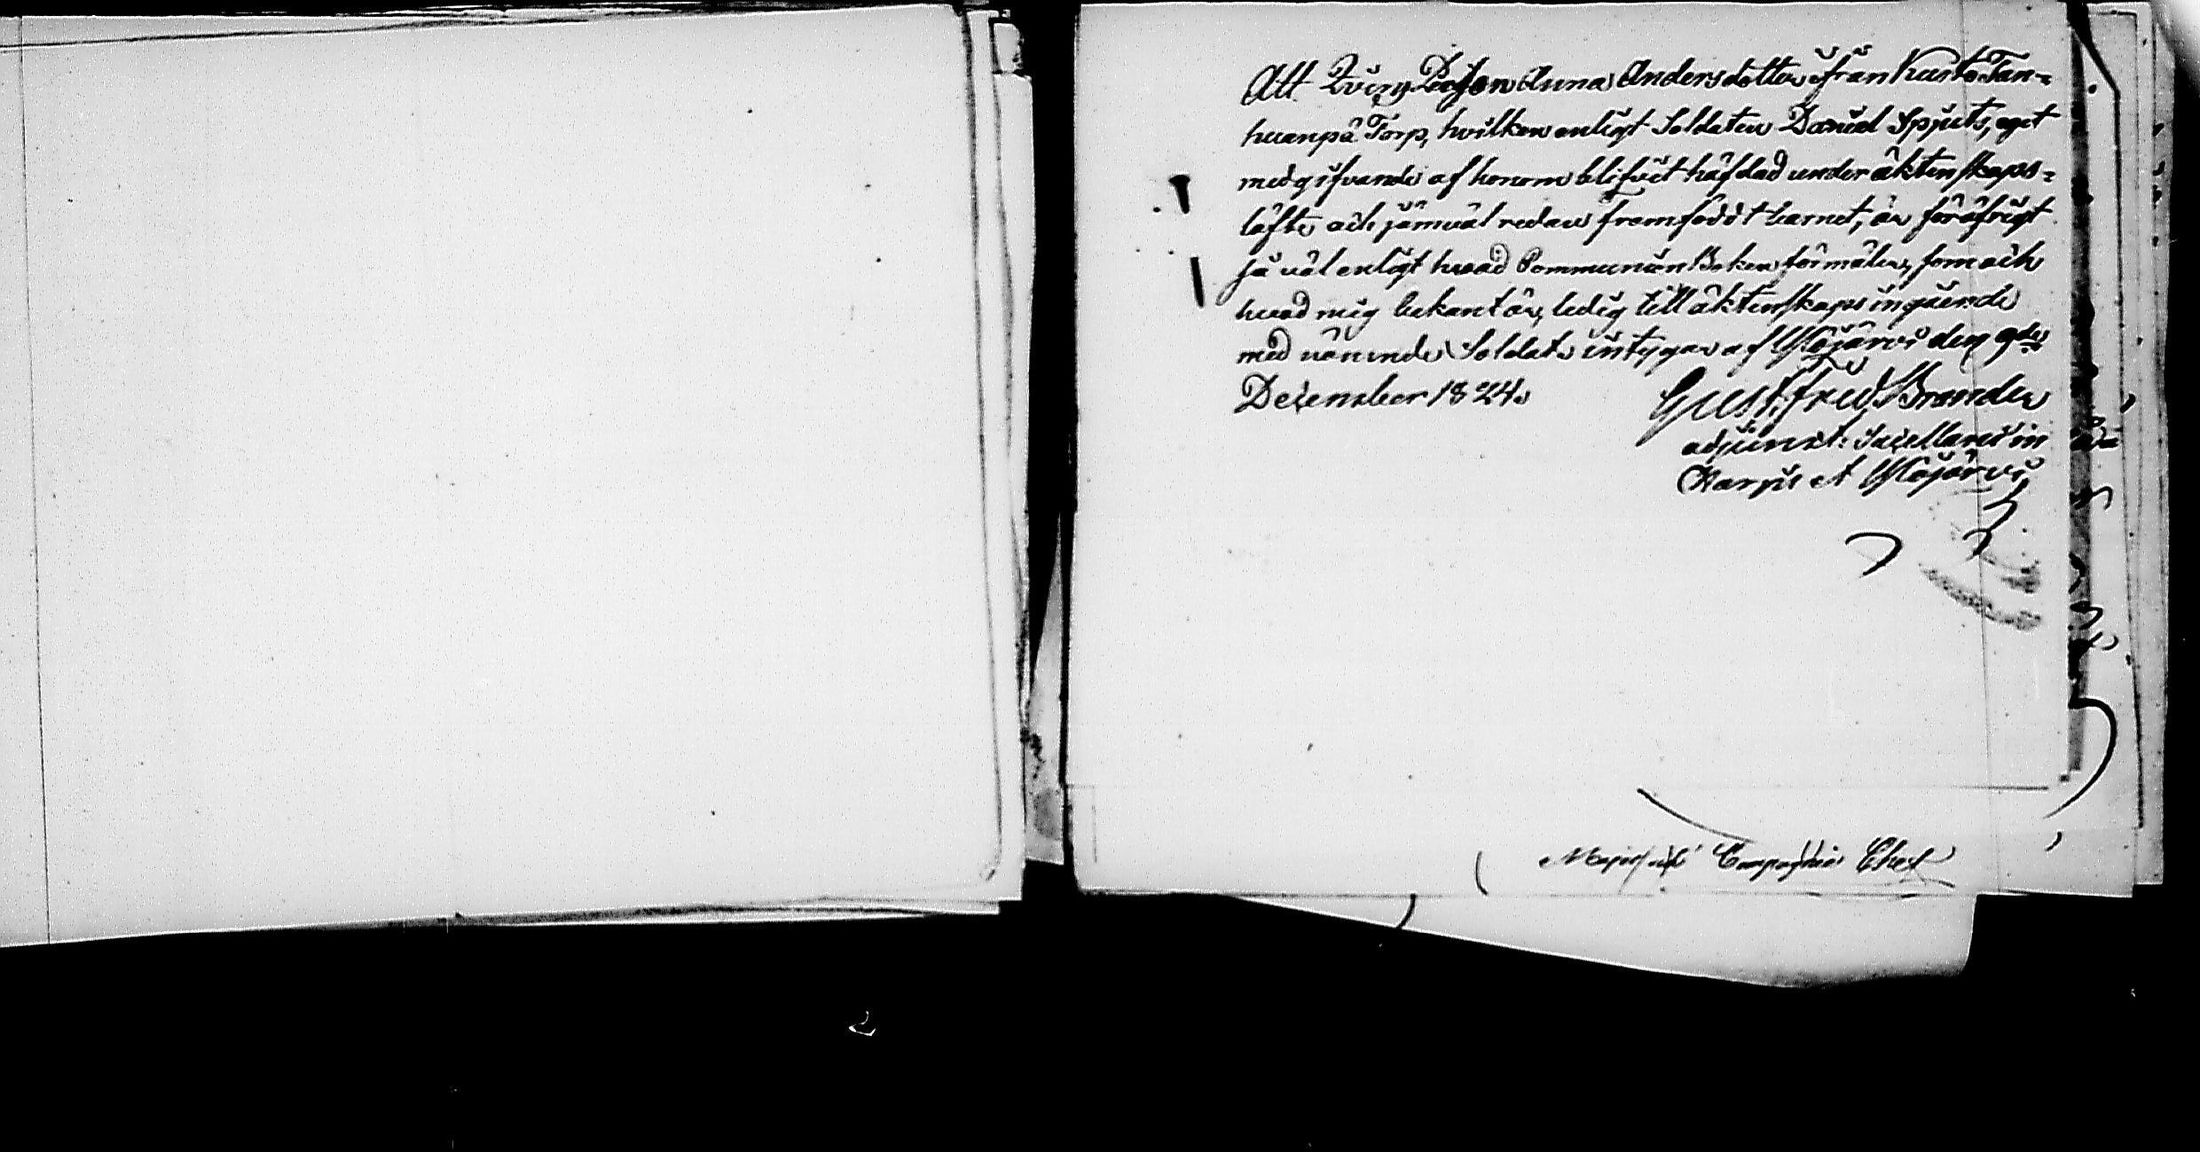 Att Qvins Person Anna Andersdotter ifrån Kusto Tan=
huanpä Torp, hvilken enligt Soldaten Daniel Spjuts, eget
medgifvande af honom blifvit häfdad under äktenskaps=
löfte och jämväl redan framfödt barnet, är föröfrigt
så väl enligt hvad Communion Boken förmäler, som och
hvad mig bekant är, ledig till äktenskaps ingående
med nämnde Soldat, intygar af Ylöjärvi den 9de
December 1824.
Gust: Fred. Brander
adjunct: Sacellani in
Kargis et Ylöjärvi
Major och Compagnie Chef